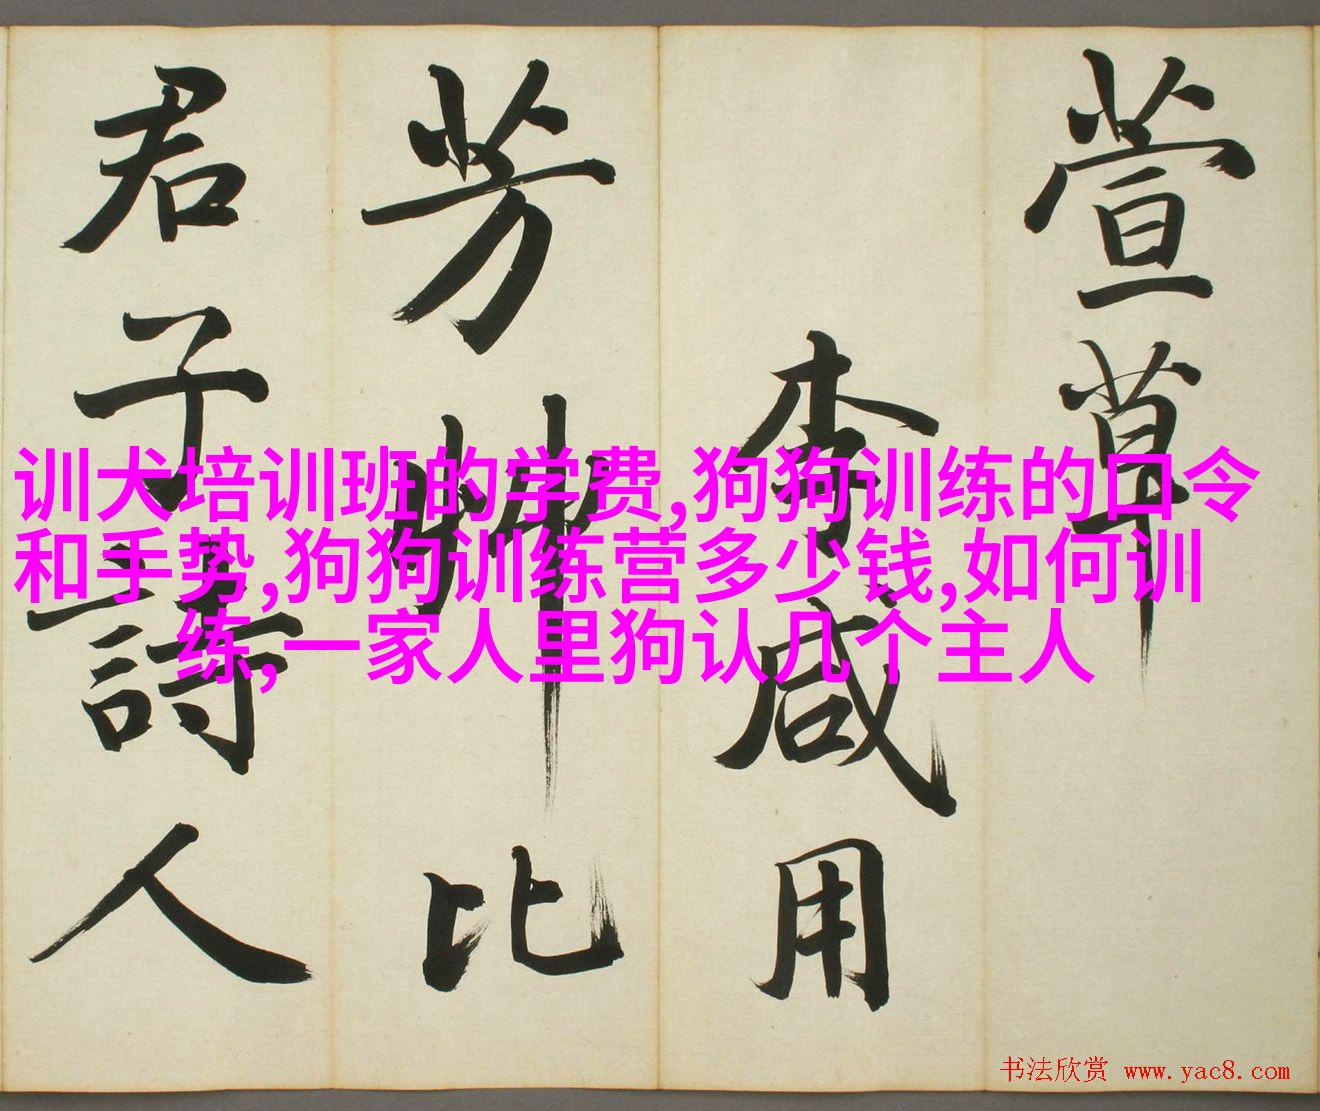 萱草
李咸用
芳艸比
君子詩人
训犬培训班的学费,狗狗训练的口令
和手势,狗狗训练营多少钱,如何训
练,一家人里狗认几个主人
书法欣赏 www.yac8.com